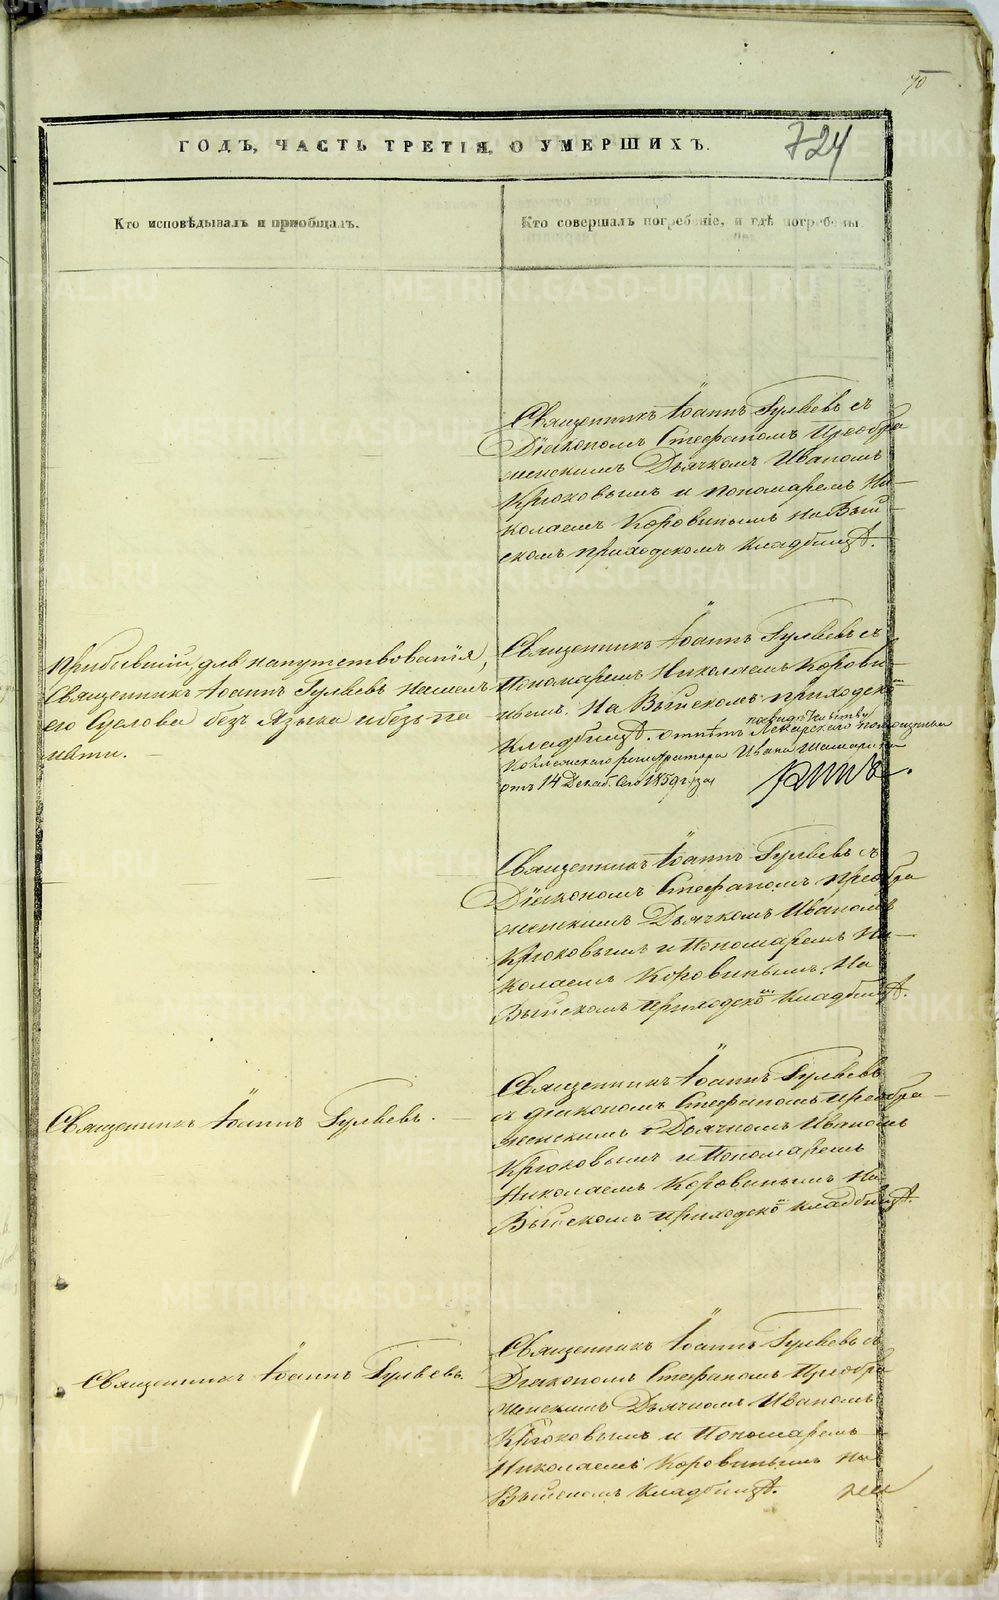 70
724
ГОДЪ, ЧАСТЬ ТРЕТІЯ, О УМЕРШИХЪ.
Кто исповѣдывалъ и пріобщалъ.
Кто совершалъ погребеніе, и гдѣ погребены.
Священникъ Іоаннъ Гуляевъ съ
Діакономъ Стефаномъ Преобра
женскимъ Дьячкомъ Иваномъ
Крюковымъ и пономаремъ Ни-
колаемъ Коровинымъ на Вый-
скомъ приходскомъ кладбищѣ.
Прибывшій для напутствованія,
Священникъ Іоаннъ Гуляевъ нашелъ
его Суслова безъ языка и безъ па
мяти.
Священникъ Іоаннъ Гуляевъ съ
Пономаремъ Николаемъ Корови-
нымъ. На Выйскомъ приходско
кладбищѣ. Лекарскаго помощника
Коллежскаго регистратора Ивана
отъ 14 Декаб. сего 1859 г. за
Священникъ Іоаннъ Гуляевъ съ
Діакономъ Стефаномъ Преобра
женскимъ Дьячкомъ Иваномъ
Крюковымъ и Пономаремъ Ни-
колаемъ Коровинымъ. На
Выйскомъ приходско кладбищѣ.
Священникъ Іоаннъ Гуляевъ.
Священникъ Іоаннъ Гуляевъ
съ діакономъ Стефаномъ Преобра-
женскимъ Дьячкомъ Иваномъ
Крюковымъ и Пономаремъ
Николаемъ Коровинымъ На
Выйскомъ приходско кладбищѣ.
Священникъ Іоаннъ Гуляевъ.
Священникъ Іоаннъ Гуляевъ съ
Діакономъ Стефаномъ Преобра
женскимъ Дьячкомъ Иваномъ
Крюковымъ и Пономаремъ
Николаемъ Коровинымъ на
Выйскомъ кладбищѣ.
METRIKI.GASO-URAL.RU